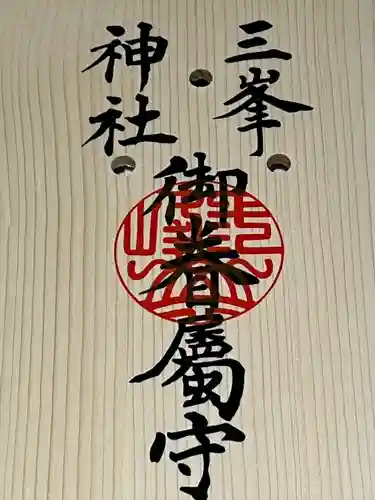 三峯
神社
御眷屬守